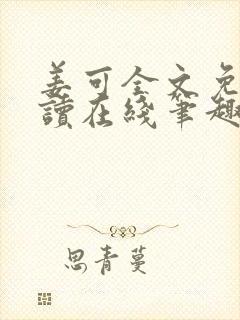 姜可全文免
讀在綫筆趣
思青蔓